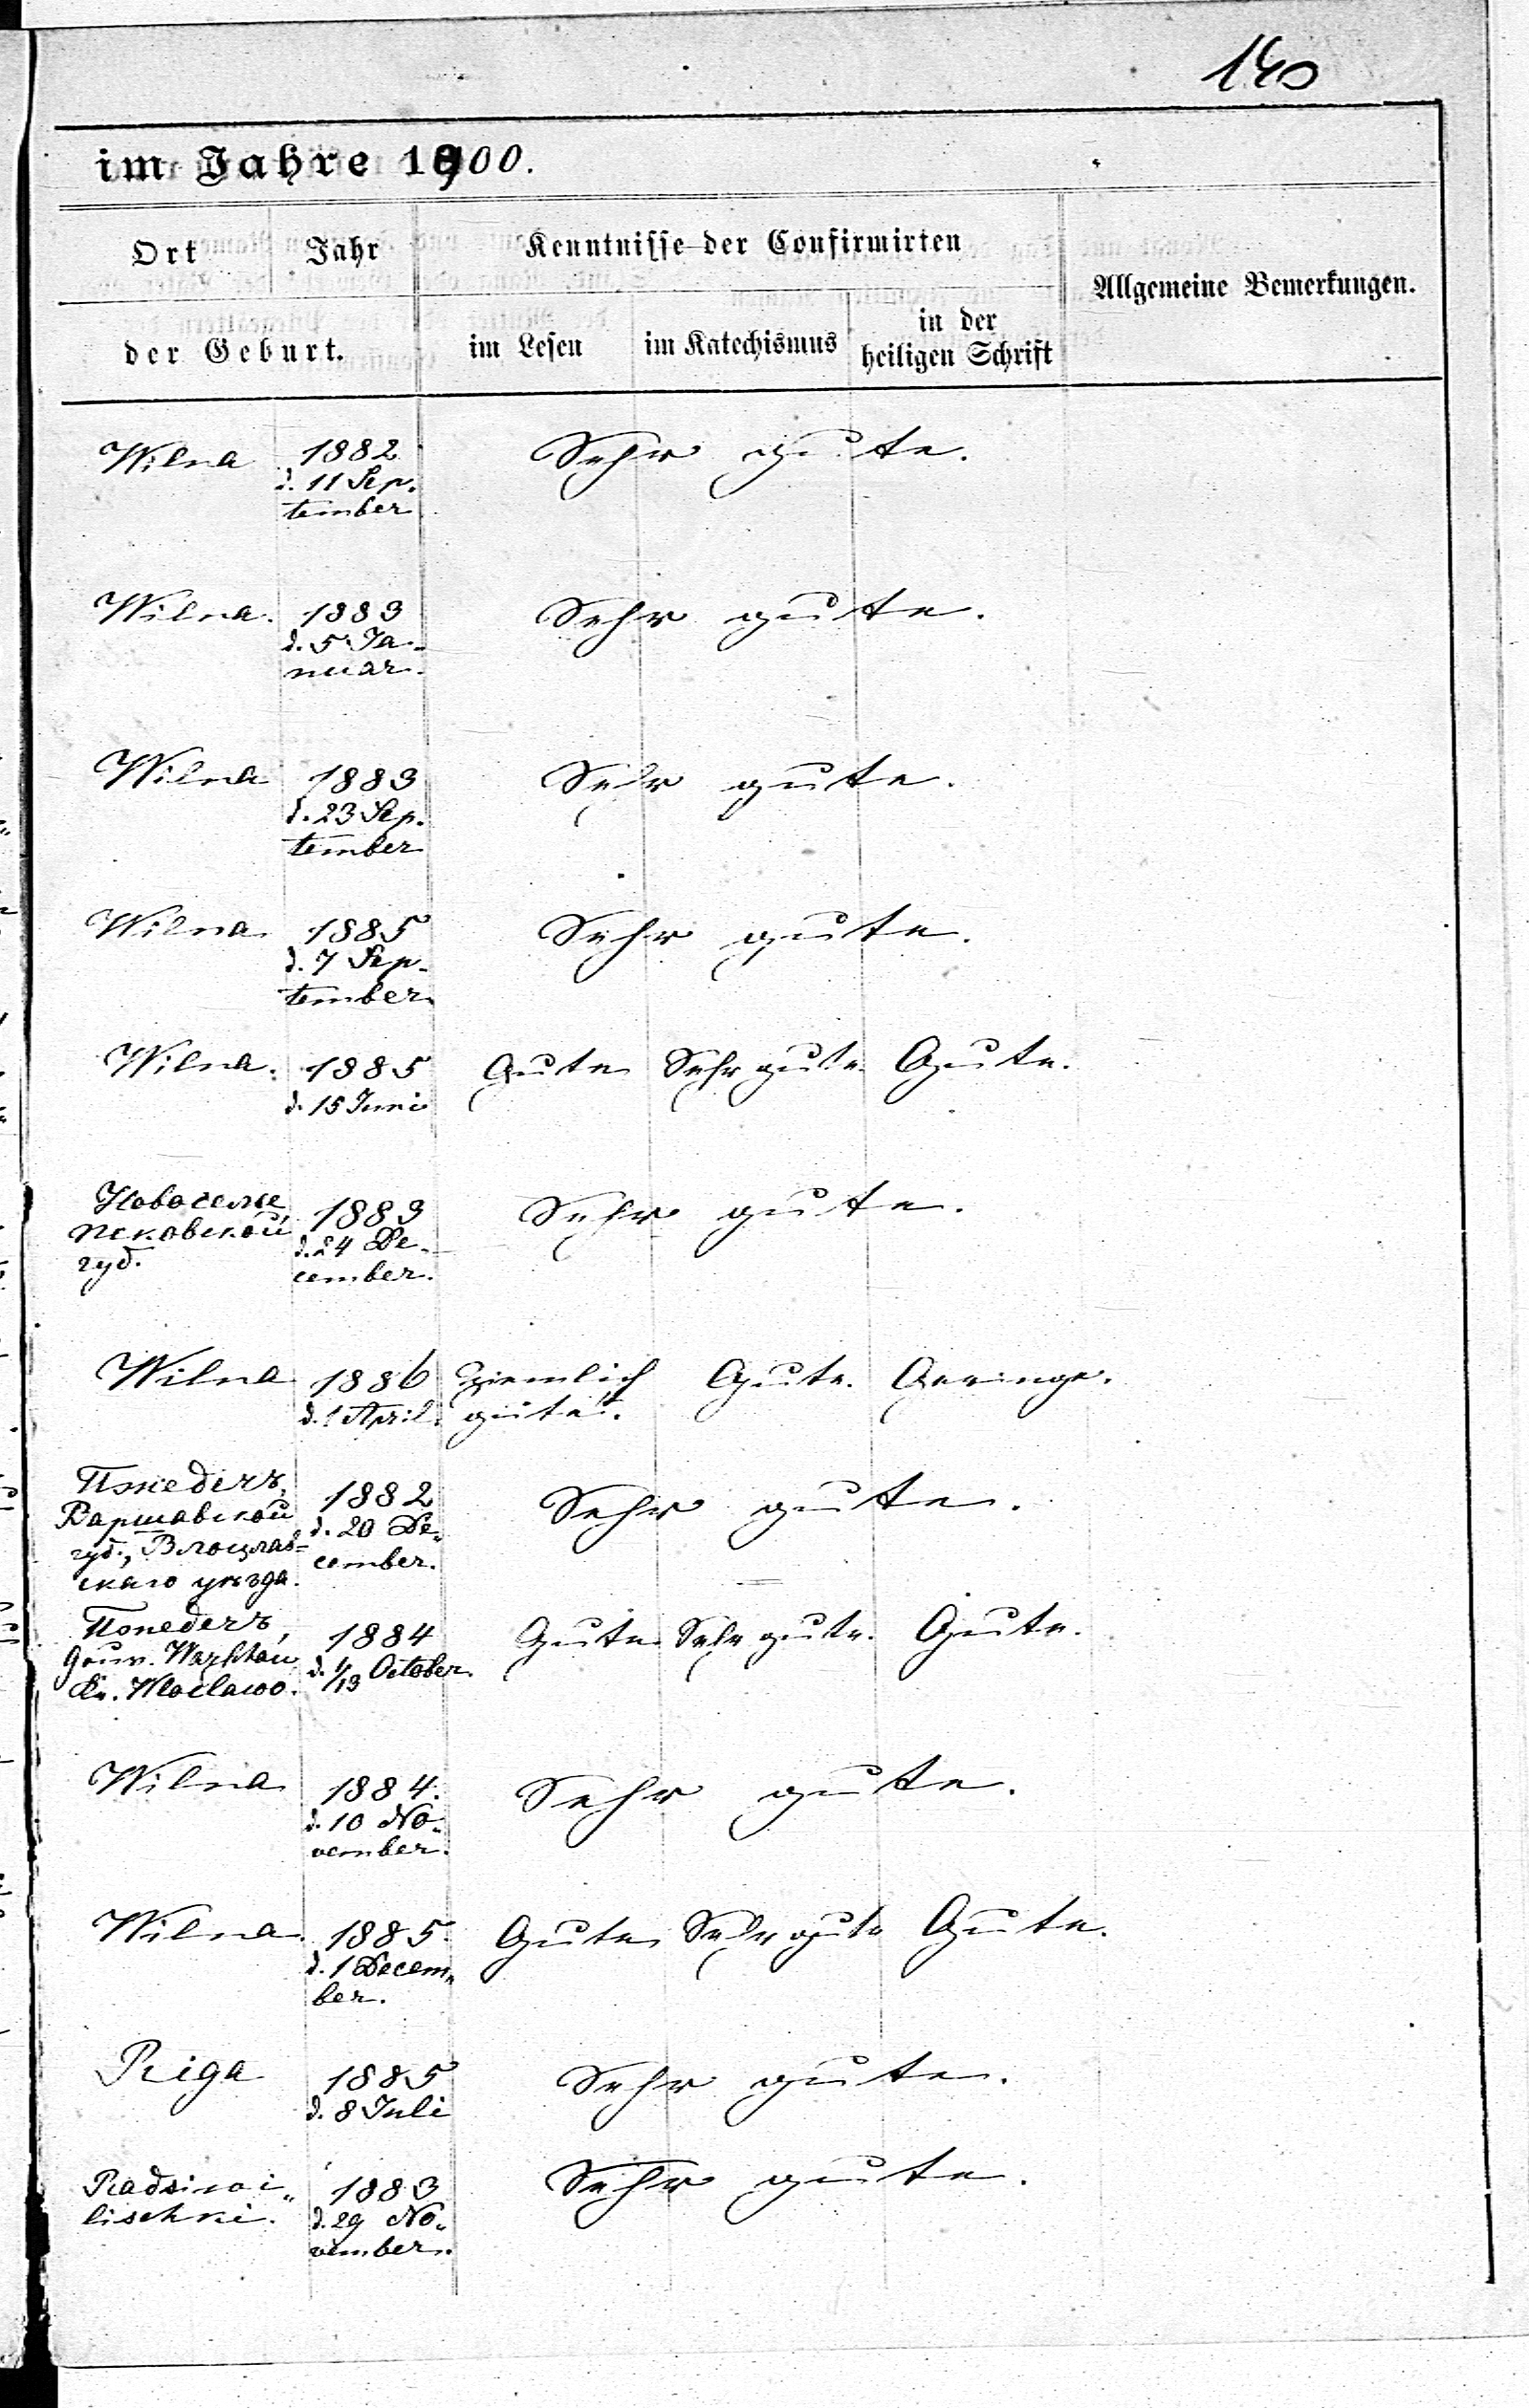 140
im Jahre 1900.
Ort Jahr Kenntnisse der Confirmirten Allgemeine Bemerkungen.
der Geburt. im Lesen im Katechismus in der heiligen Schrift
Wilna 1882 Sehr gute.
d. 11 Sep.
tember
Wilna. 1883 Sehr gute.
d. 5 Ja-
nuar.
Wilna 1883 Sehr gute.
d. 23 Sep.
tember
Wilna 1885 Sehr gute.
d. 7 Sep-
tember
Wilna. 1885 Gute Sehr gute. Gute.
d. 15 Juni
Новоселье 1883 Sehr gute.
Псковской d. 24 De-
губ. cember.
Wilna 1886 Ziemlich Gute. Geringe.
d. 1 April. gute.
1882 Sehr gute.
Варшавской d. 20 De-
губ., Влоцлав- cember.
скаго уѣзда.
1884 Gute Sehr gute. Gute.
Gouv. d. 1/13 October.
Wilna 1884. Sehr gute.
d. 10 No-
vember.
Wilna 1885 Gute Sehr gute Gute.
d. 1 Decem-
ber.
Riga 1885 Sehr gute.
d. 8 Juli
1883 Sehr gute.
lischki. d. 29 No-
vember.